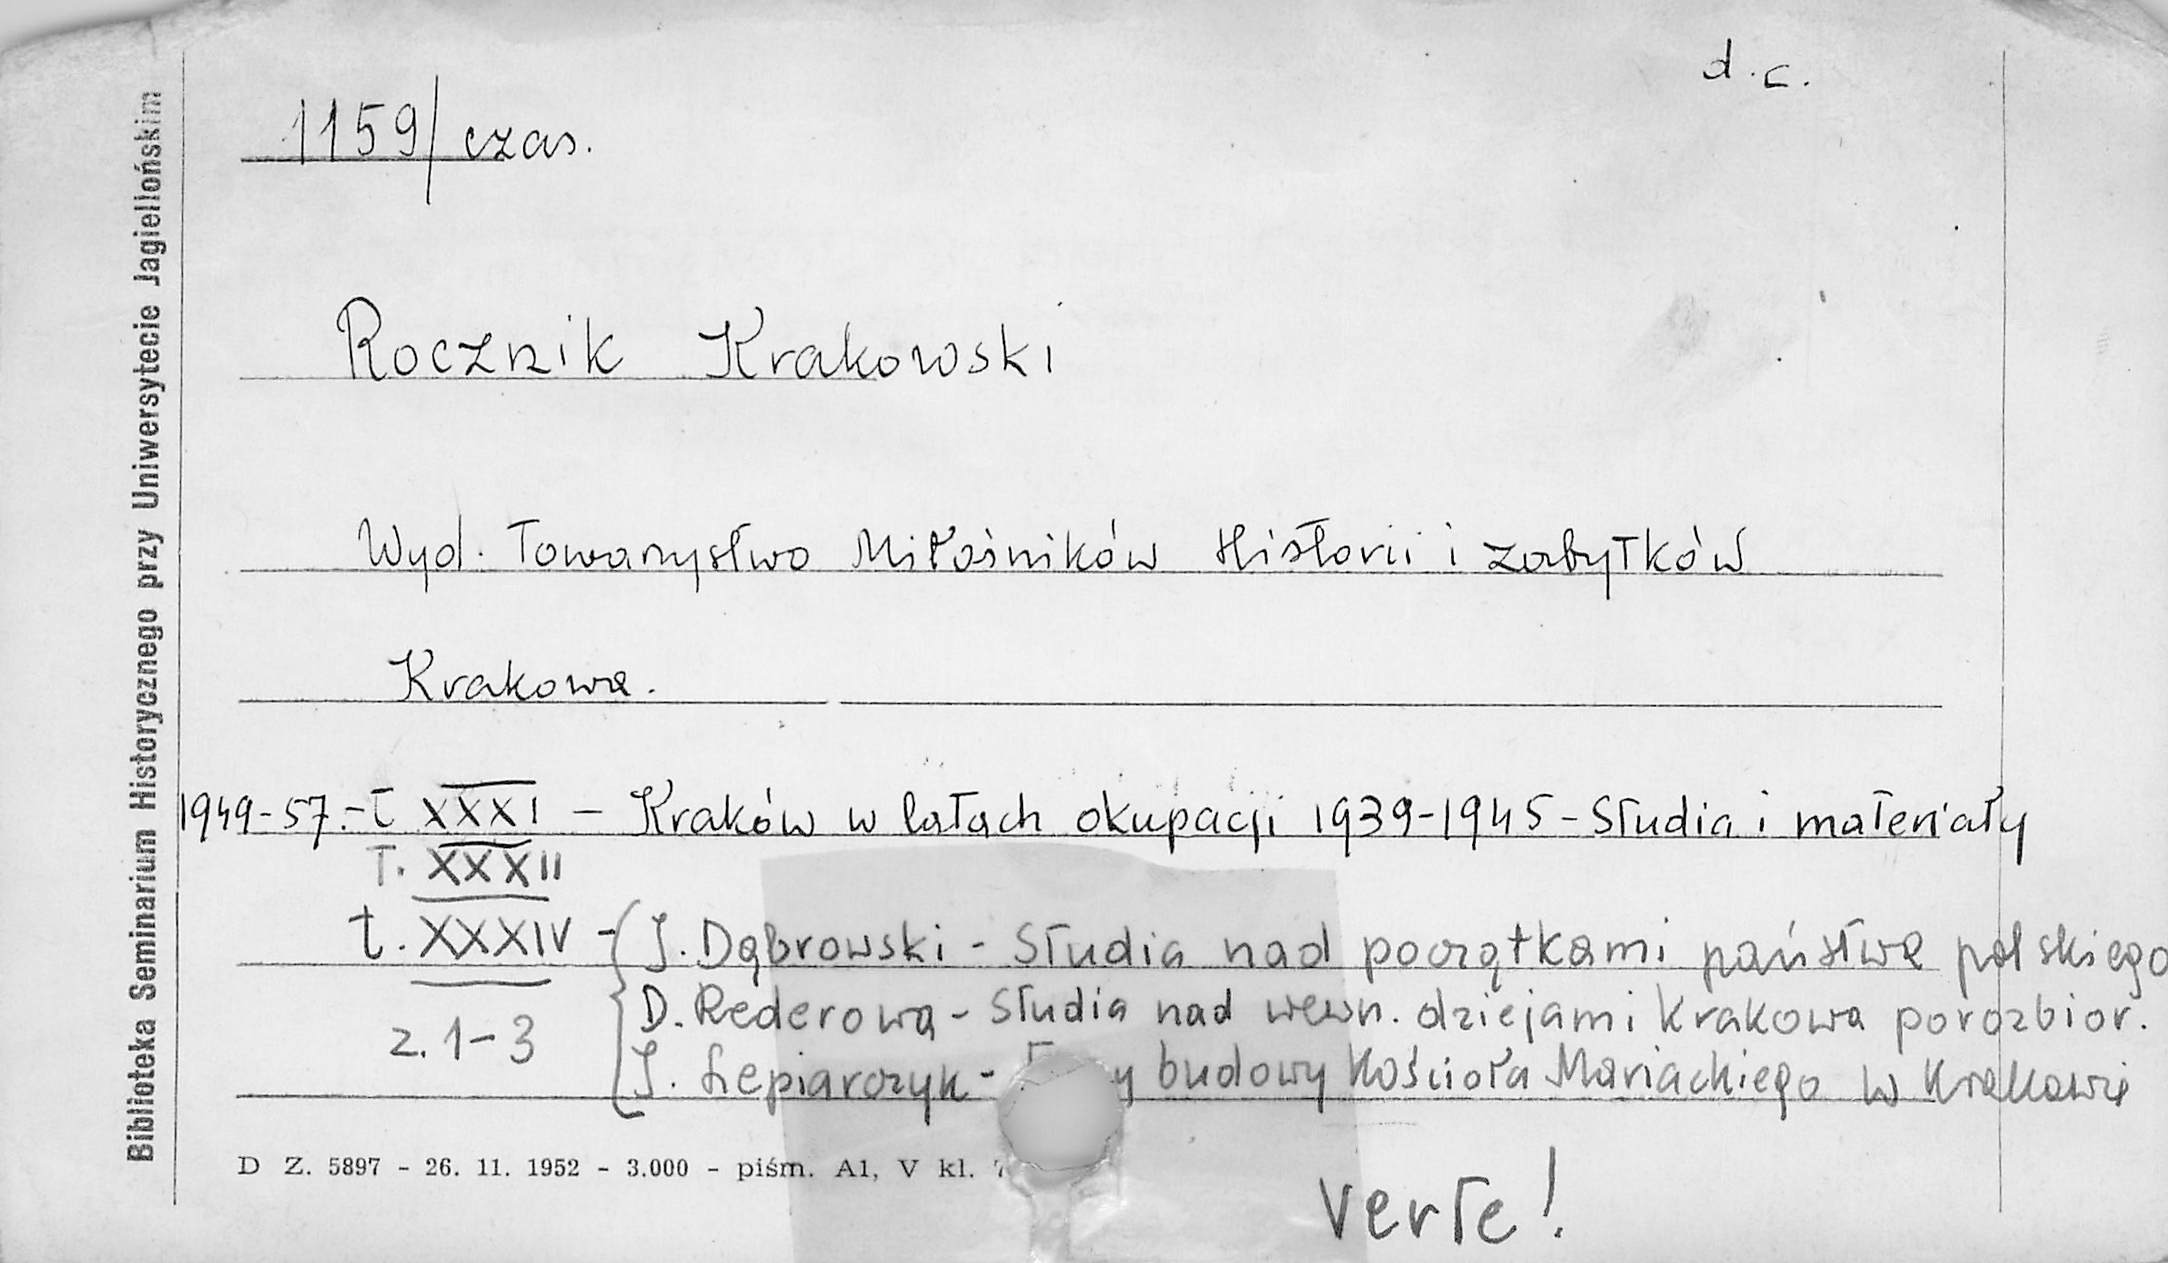 d.c.
1159/czas.
Rocznik Krakowski
Wyd. Towarzystwo Miłośników Historii i Zabytków
Krakowa.
1949-57.-t XXXI - Kraków w latach okupacji 1939-1945 - Studia i materiały
T. XXXII
t. XXXIV - J. Dąbrowski - Studia nad początkami państwa polskiego
D. Rederowa - Studia nad wewn. dziejami Krakowa porozbior.
z. 1-3
J. Lepiarczyk - budowy Kościoła Mariackiego w Krakowie
D Z. 5897 - 26. 11. 1952 - 3.000 - piśm. A1, V kl.
Verte!
Biblioteka Seminarium Historycznego przy Uniwersytecie Jagiellońskim